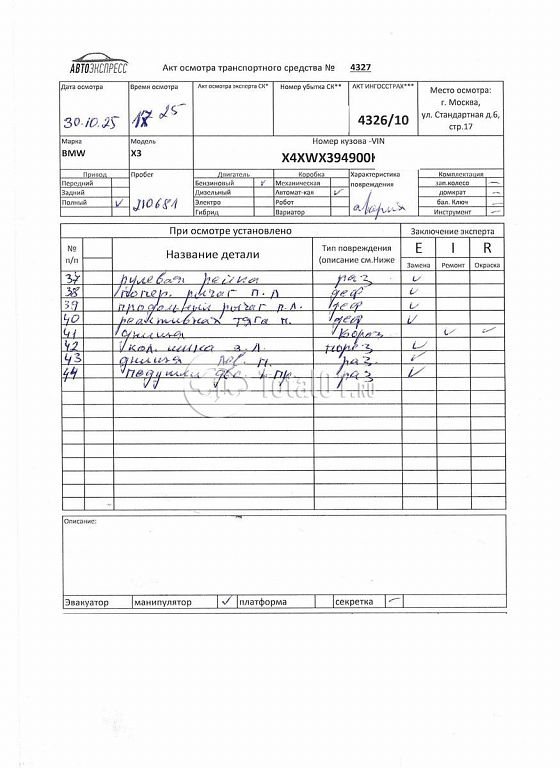 АВТОЭКСПРЕСС
Акт осмотра транспортного средства № 4327
Дата осмотра Время осмотра Акт осмотра эксперта СК* Номер убытка СК** АКТ ИНГОССТРАХ*** Место осмотра:
30.10.25 17 25 4326/10 г. Москва,
ул. Стандартная д.6,
стр.17
Марка Модель Номер кузова -VIN
BMW X3 X4XWX394900
Привод Пробег Двигатель Коробка Характеристика повреждения Комплектация
Передний Бензиновый ✓ Механическая зап.колесо –
Задний Дизельный Автомат-кая ✓ домкрат –
Полный ✓ 210681 Электро Робот авария бал. Ключ –
Гибрид Вариатор Инструмент –
При осмотре установлено Заключение эксперта
№ п/п Название детали Тип повреждения (описание см.Ниже E I R
Замена Ремонт Окраска
37 рулевая рейка раз ✓
38 попер. рычаг п.л деф ✓
39 продольный рычаг п.л. деф ✓
40 реактивная тяга п. деф ✓
41 ✓
42 з.л. ✓
43 п. раз ✓
44 подушки пр. раз ✓
Total01.ru
Описание:
Эвакуатор манипулятор ✓ платформа секретка –